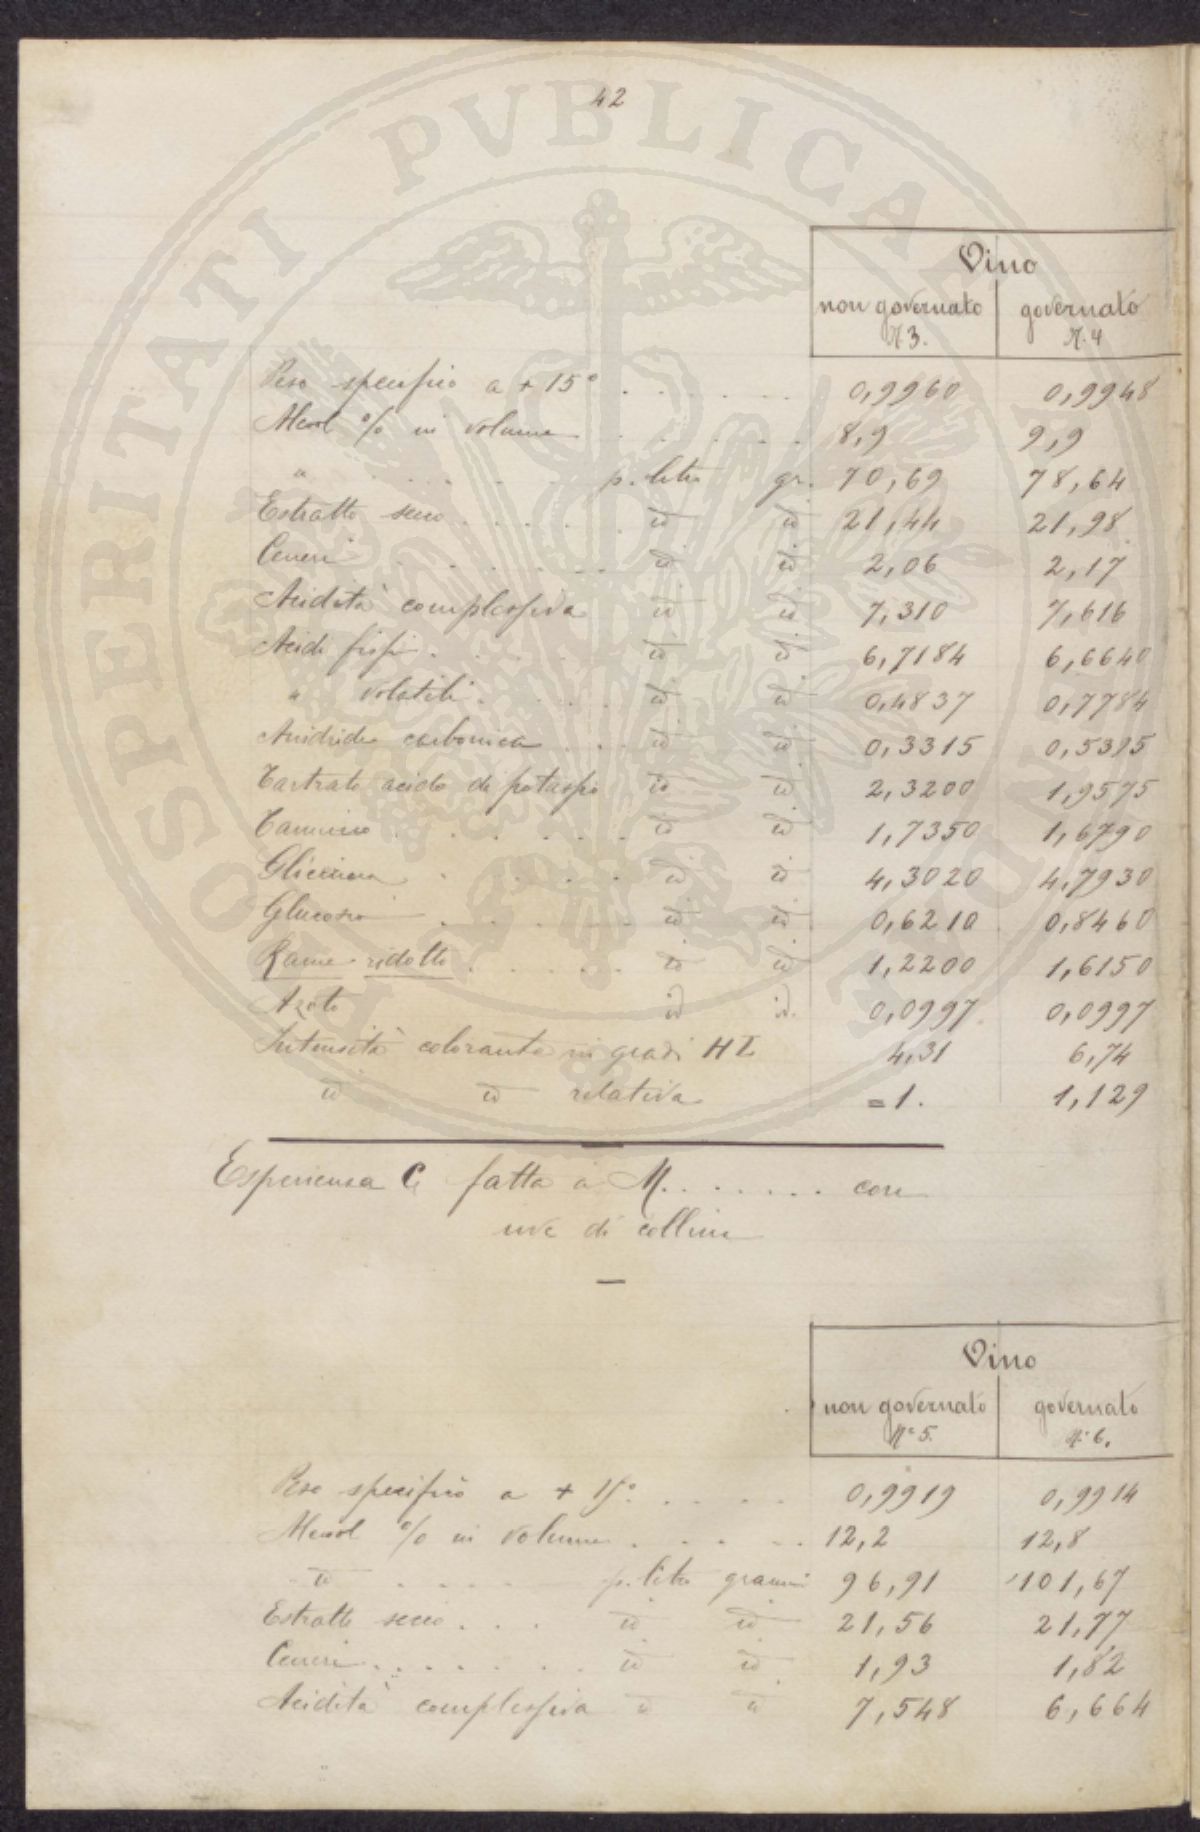 42
Vino
non governato governato
N. 3. N. 4
Peso specifico a + 15° . . . . . . 0,9960 0,9948
Alcool % in volume . . . . . 8,9 9,9
" . . . . . p. litro gr. 70,69 78,64
Estratto secco . . . . . id id 21,44 21,98
Ceneri . . . . . . id id 2,06 2,17
Acidità complessiva id id 7,310 7,616
Acidi fissi . . . . id id 6,7184 6,6640
" volatili . . . . id id 0,4837 0,7784
Anidride carbonica . . id id 0,3315 0,5395
Tartrato acido di potassio id id 2,3200 1,9575
Tannino . . . . . . id id 1,7350 1,6790
Glicerina . . . . . id id 4,3020 4,7930
Glucosio . . . . . . id id 0,6210 0,8460
Rame ridotto . . . . . id id 1,2200 1,6150
Azoto id id. 0,0997 0,0997
Intensità colorante in gradi HI 4,31 6,74
id id relativa = 1. 1,129
Esperienza C fatta a M. . . . . . . con
uve di collina
Vino
non governato governato
N° 5. N° 6.
Peso specifico a + 15° . . . . 0,9919 0,9914
Alcool % in volume . . . . . 12,2 12,8
id . . . . p. litro grammi 96,91 101,67
Estratto secco . . . id id 21,56 21,77
Ceneri . . . . . . . id id 1,93 1,82
Acidità complessiva id id 7,548 6,664
PROSPERITATI PVBLICAE